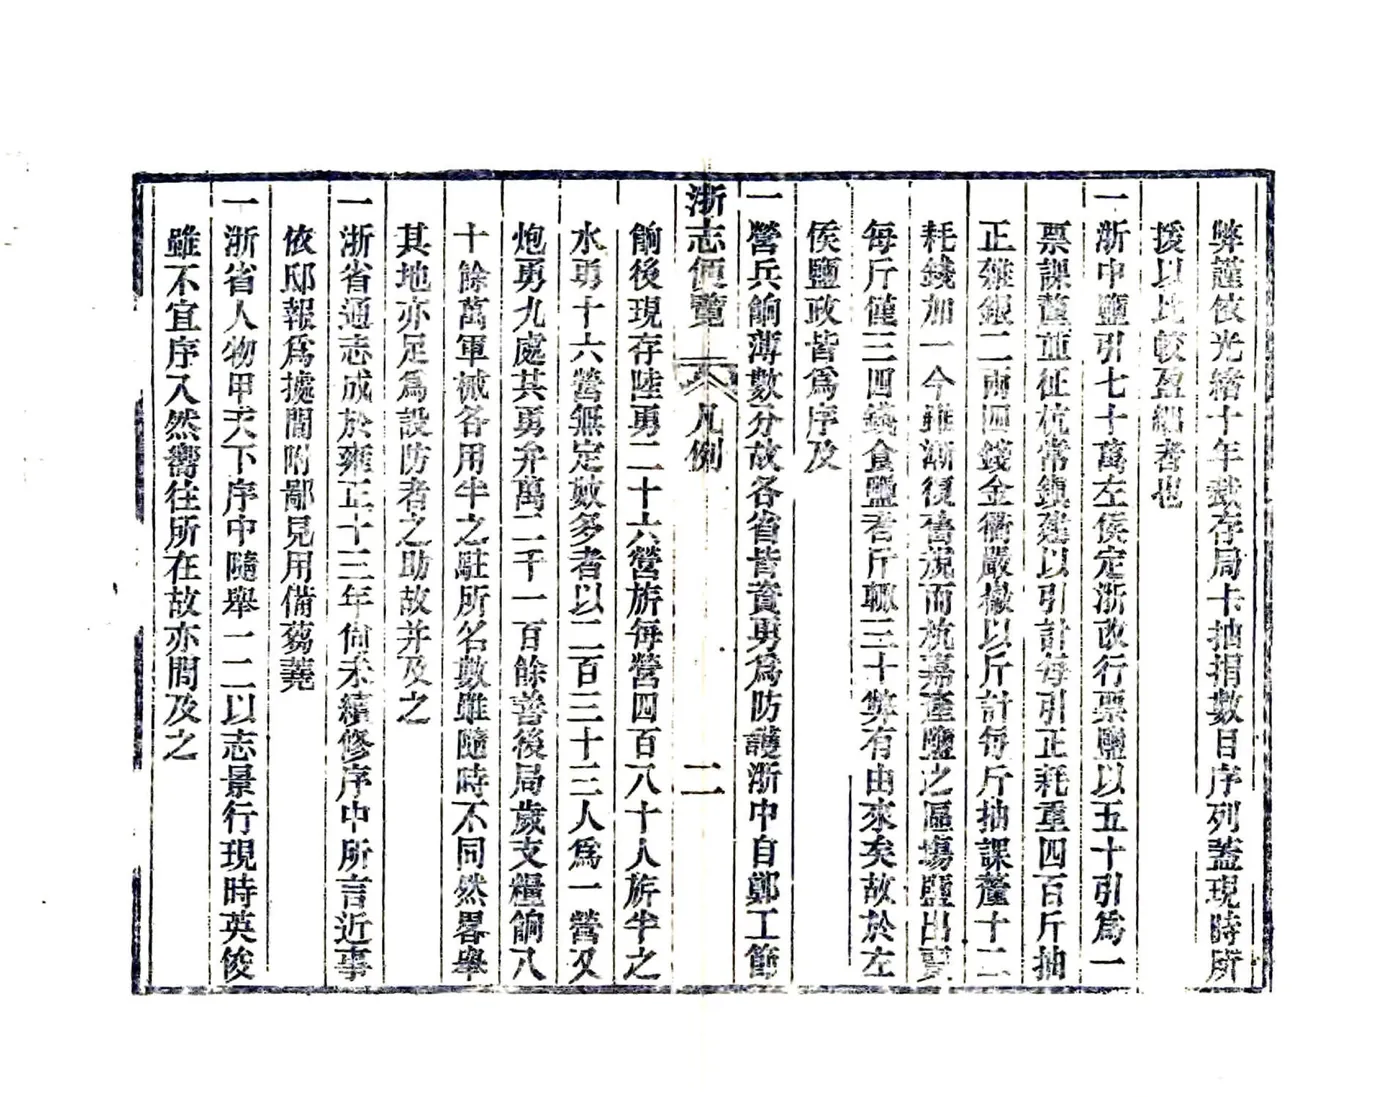 弊謹依光緒十年截存局卡抽捐數目序列蓋現時所
援以比較盈絀者也
一浙中鹽引七十萬左侯定浙改行票鹽以五十引為一
票課釐並征杭常鎮建以引計每引正耗重四百斤抽
正雜銀二兩四錢金衢嚴徽以斤計每斤抽課釐十二
耗錢加一今雖漸復舊規而杭嘉產鹽之區場鹽出賣
每斤僅三四錢食鹽者斤輒三十弊有由來矣故於左
侯鹽政皆為序及
一營兵餉薄數分故各省皆資勇為防護浙中自鄭工節
浙志便覽 凡例 二
餉後現存陸勇二十六營旂每營四百八十人旂半之
水勇十六營無定數多者以二百三十三人為一營又
炮勇九處其勇弁萬二千一百餘善後局歲支糧餉八
十餘萬軍械各用半之駐所名數雖隨時不同然畧舉
其地亦足為設防者之助故并及之
一浙省通志成於雍正十三年尙未續修序中所言近事
依邸報為據間附鄙見用備蒭蕘
一浙省人物甲天下序中隨舉一二以志景行現時英俊
雖不宜序入然嚮往所在故亦間及之